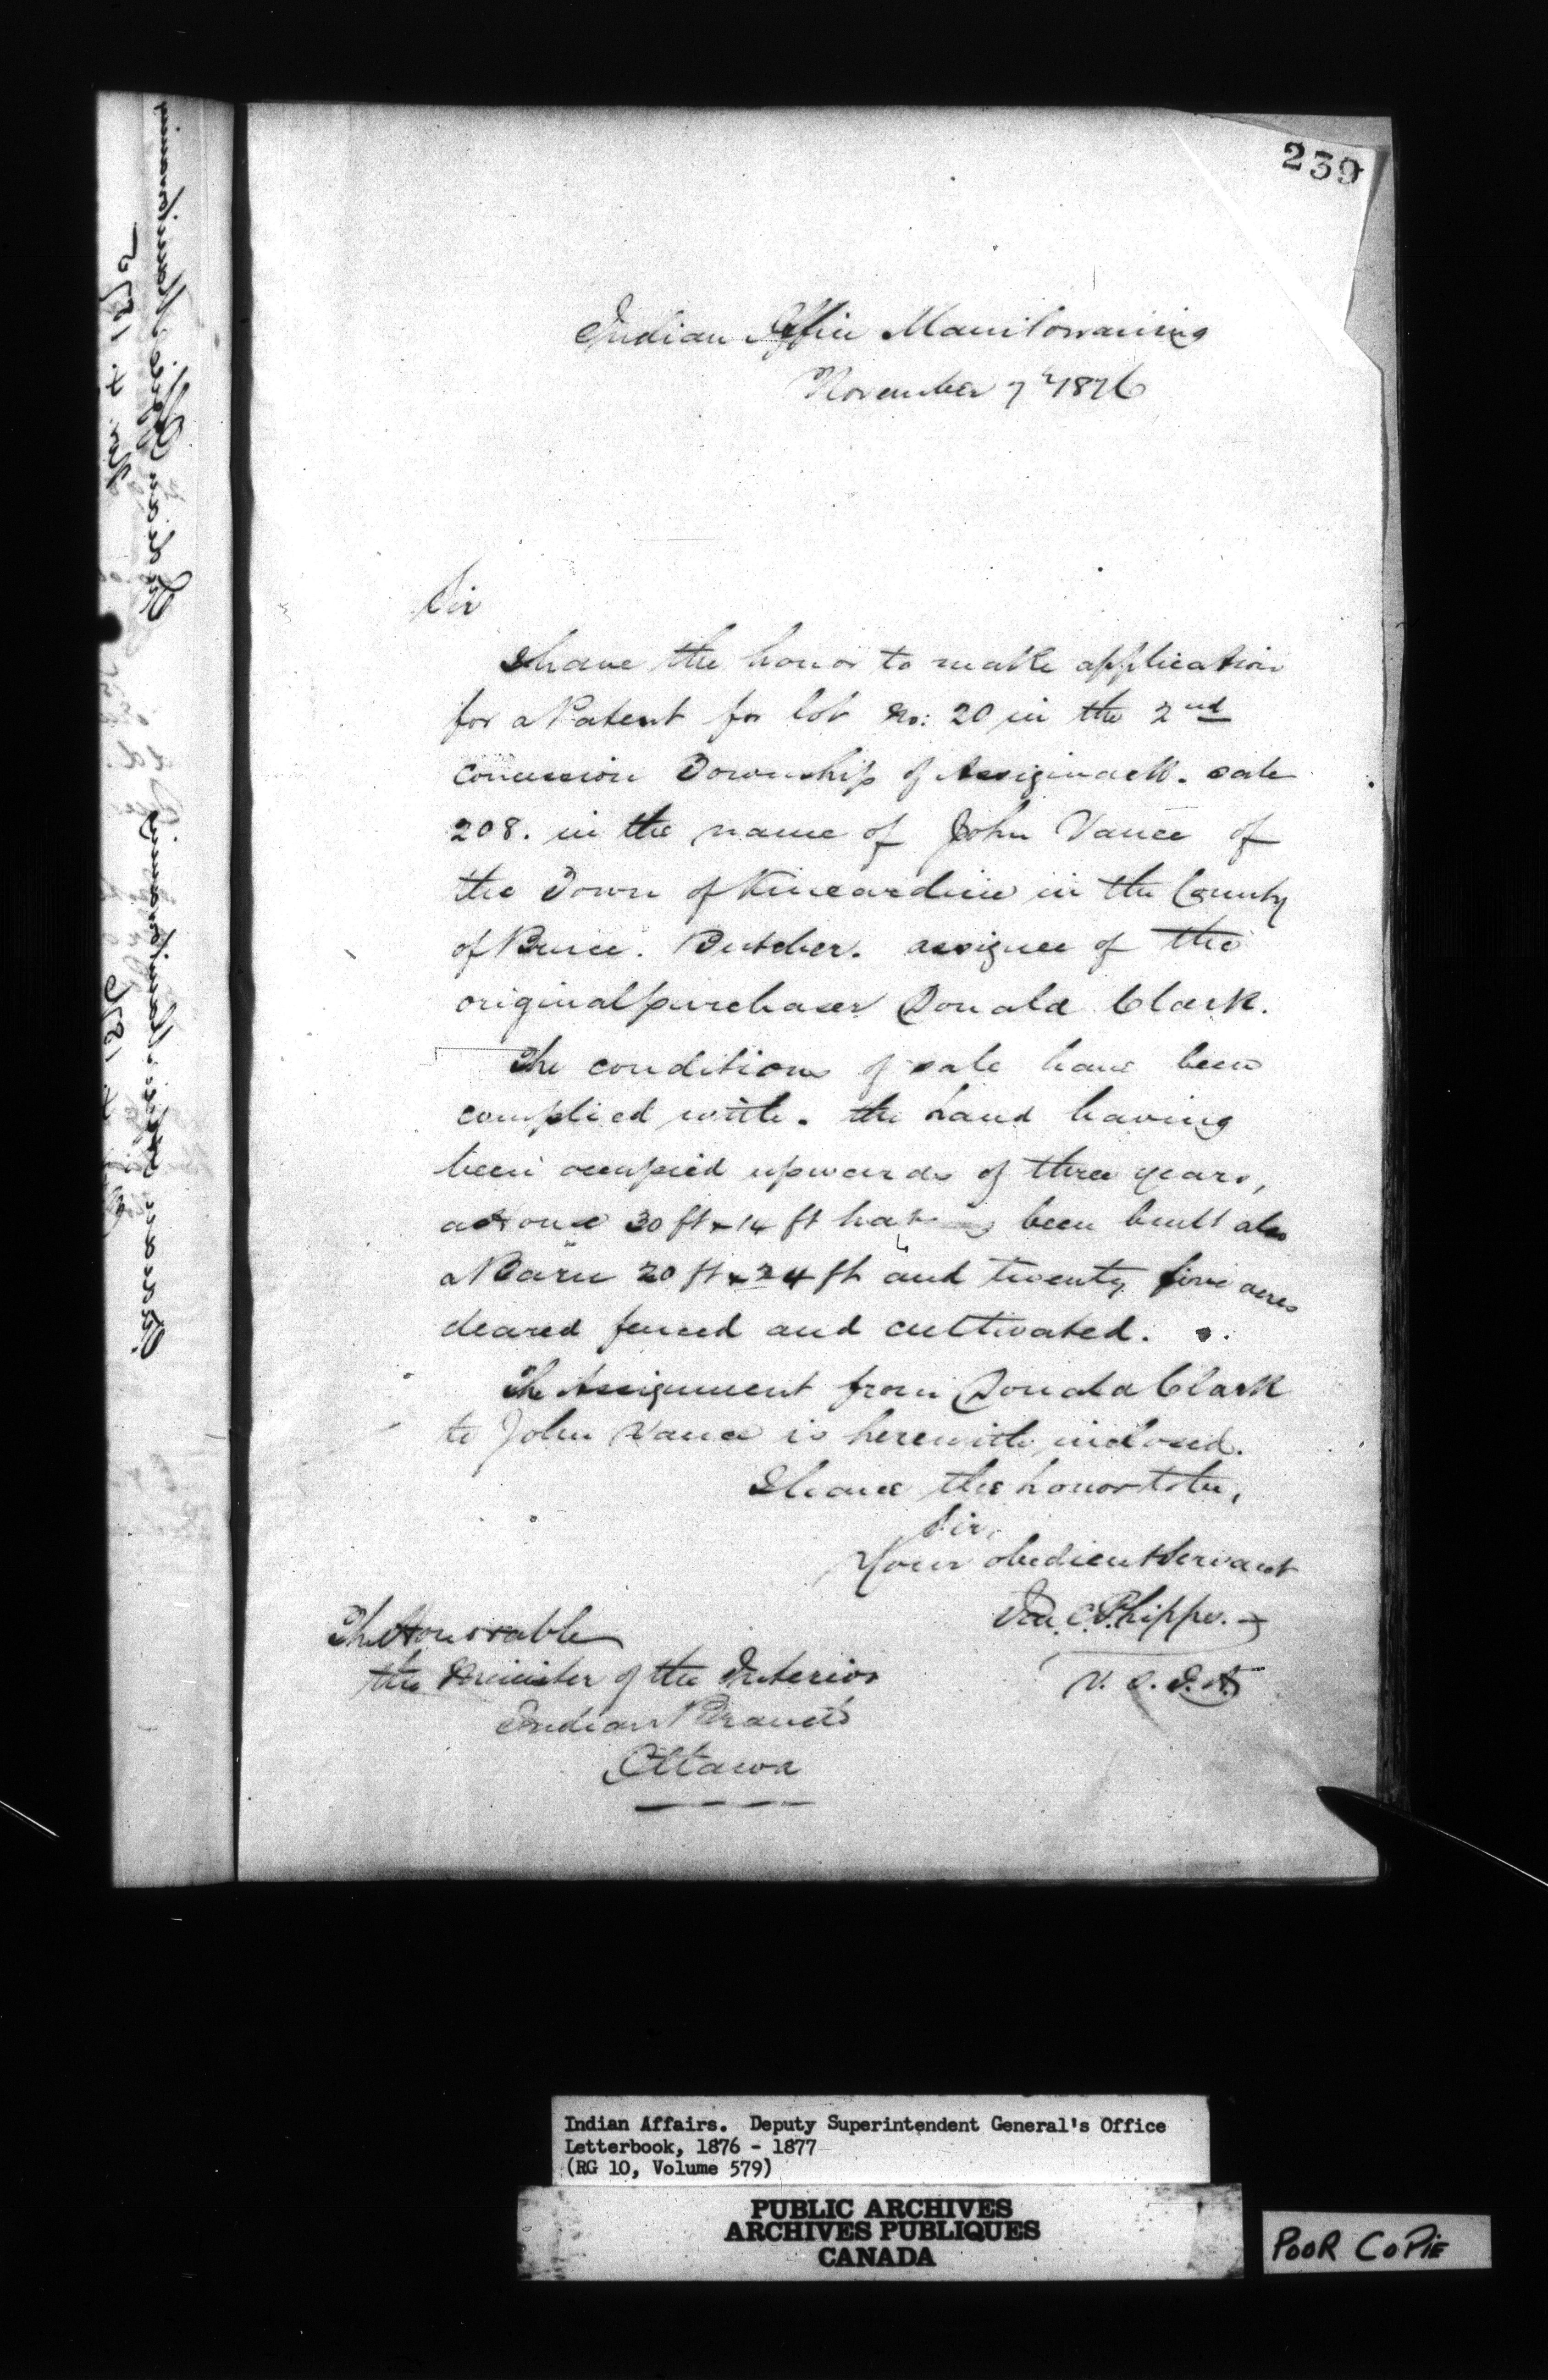 239
Indian Office Manitowaning
November 7th 1876
Sir
I have the honor to make application
for a Patent for lot No: 20 in the 2nd
concession Township of Assiginack. sale
208. in the name of John Vance of
the Town of Kincardine in the County
of Bruce. Butcher. assignee of the
original purchaser Donald Clark.
The conditions of sale have been
complied with. the Land having
been occupied upwards of three years,
a House 30 ft x 14 ft having been built also
a Barn 20 ft x 24 ft and twenty five acres
cleared fenced and cultivated.
The Assignment from Donald Clark
to John Vance is herewith inclosed.
I have the honor to be,
Sir,
Your obedient Servant
C. Phipps.
V. S. I. A.
The Honorable
the Minister of the Interior
Indian Branch
Ottawa
Indian Office Manitowaning
Indian Office Manitowaning
Indian Affairs. Deputy Superintendent General's Office
Letterbook, 1876 - 1877
(RG 10, Volume 579)
PUBLIC ARCHIVES
ARCHIVES PUBLIQUES
CANADA
POOR COPIE